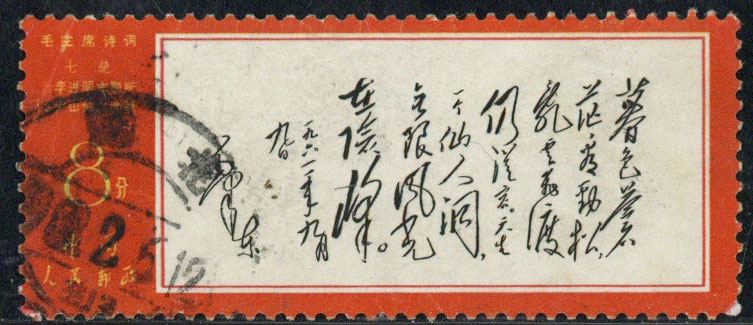 毛主席诗词
七绝
李进同志
山
8分
中
人民邮政
暮色蒼
茫看劲松，
乱云飞渡
仍從容。天生
一个仙人洞，
无限风光
在险峰。
一九六一年九月
九日
毛泽东
2.5.12